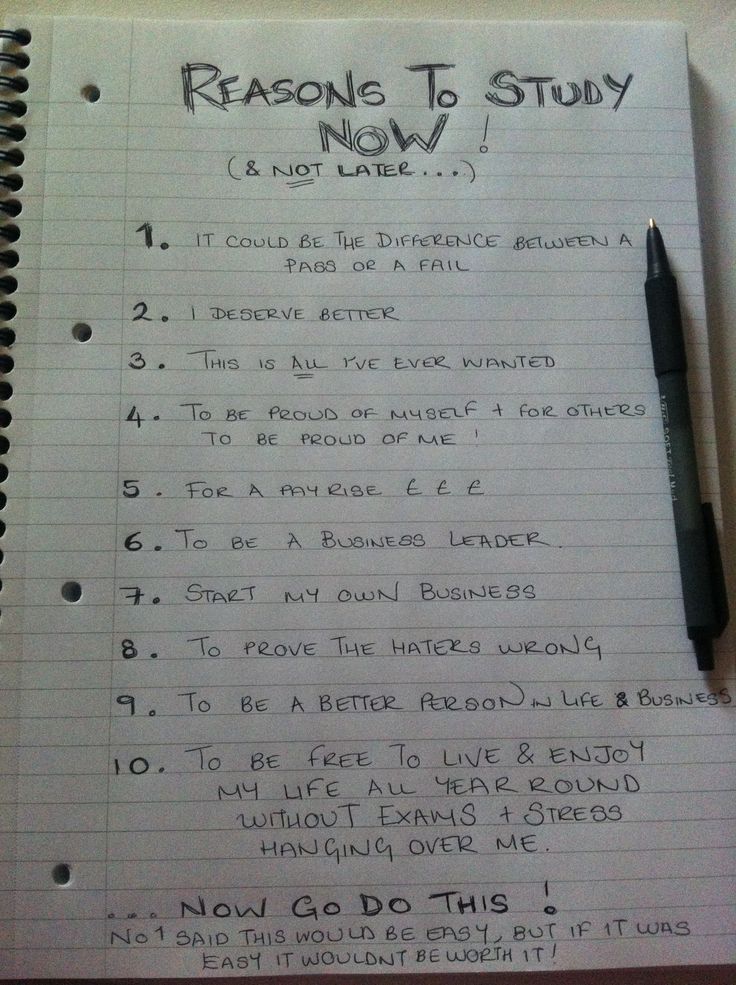 REASONS TO STUDY
NOW!
(& NOT LATER....)
1. IT COULD BE THE DIFFERENCE BETWEEN A
PASS OR A FAIL
2. I DESERVE BETTER
3. THIS IS ALL I'VE EVER WANTED
4. TO BE PROUD OF MYSELF + FOR OTHERS
TO BE PROUD OF ME!
5. FOR A PAY RISE £ £ £
6. TO BE A BUSINESS LEADER.
7. START MY OWN BUSINESS
8. TO PROVE THE HATERS WRONG
9. TO BE A BETTER PERSON IN LIFE & BUSINESS
10. TO BE FREE TO LIVE & ENJOY
MY LIFE ALL YEAR ROUND
WITHOUT EXAMS + STRESS
HANGING OVER ME.
... NOW GO DO THIS!
NO1 SAID THIS WOULD BE EASY, BUT IF IT WAS
EASY IT WOULDNT BE WORTH IT!